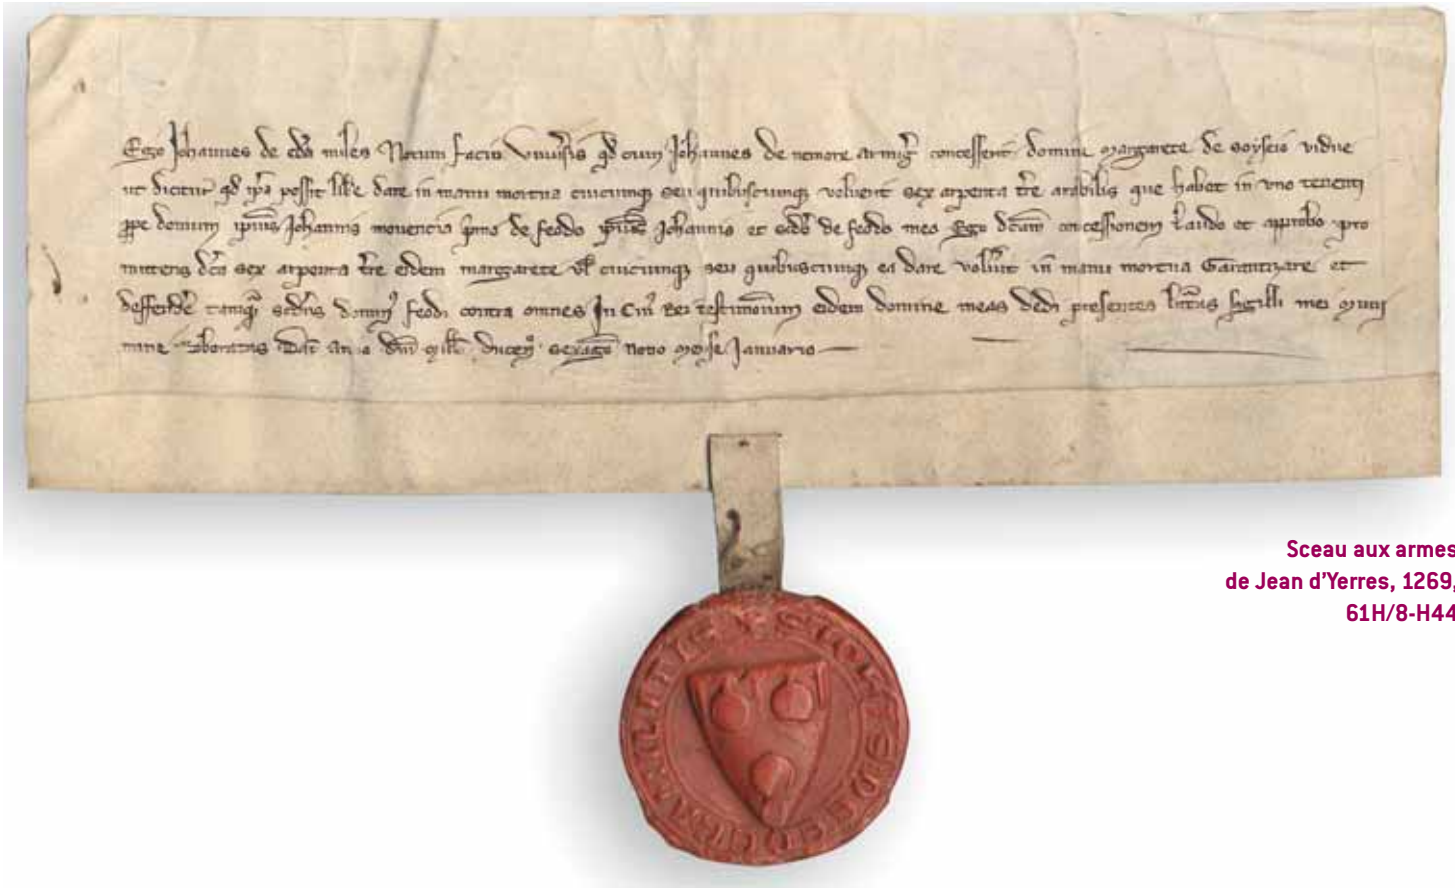 Ego Johannes de miles Notum facio Univ'sis qd cum Johannes de nemore armig' concesserit domine Margarete de Soyseio vidue
ut dicitur qd ip̃a possit lib'e dare in manu mortua cuicumq; seu quibuscumq; voluerit sex arpenta t're arabilis que habet in uno tenenti
ꝓpe domum ip̃ius Johannis moventia p'mo de feodo ip̃ius Johannis et scdo de feodo meo Ego dc̃am concessionem laudo et approbo pro
mittens dc̃a sex arpenta t're eidem margarete vl' cuicumq; seu quibuscumq; ea dare volu'it in manu mortua Garantizare et
deffend'e tamq̃ scd'us domin' feodi contra omnes In cui' Rei testimonium eidem domine meas dedi presentes litt'as sigilli mei muni
mine roboratas Dat' Anno dñi Mill'o ducent' sexag' nono mense Januario
Sceau aux armes
de Jean d'Yerres, 1269,
61H/8-H44